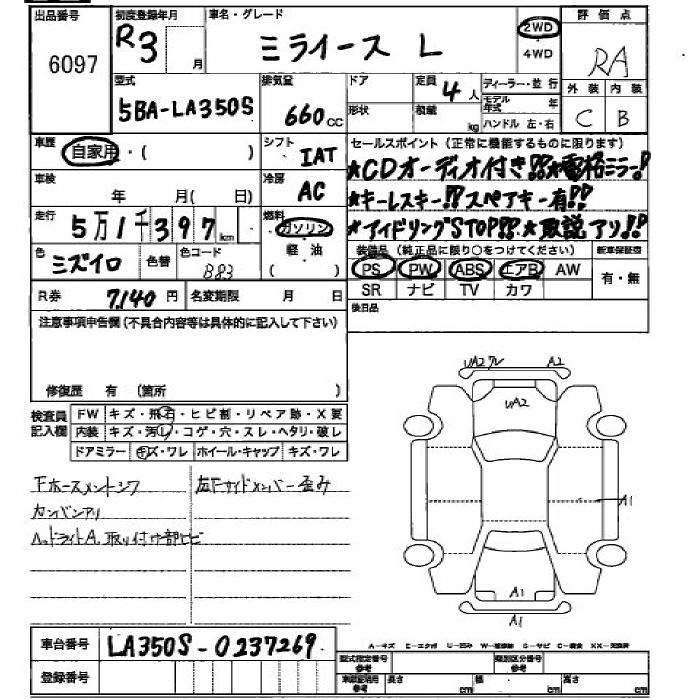 出品番号 初度登録年月 車名・グレード 評価点
6097 R3 月 ミライース L 2WD ・ 4WD RA
型式 排気量 ドア 定員 ディーラー・並行 外装 内装
5BA-LA350S 660CC 形状 4人 積載 kg モデル年式 年 ハンドル 左・右 C B
車歴 シフト セールスポイント(正常に機能するものに限ります)
自家用・( ) IAT ★CDオーディオ付き!!★電格ミラー!!
車検 冷房 ★キーレスキー!!スペアキー有!!
年 月( 日) AC ★アイドリングSTOP!!★取説アリ!!
走行 燃料 装備品(純正品に限り○をつけてください) 新車保証書
5万1千397km ガソリン PS PW ABS エアB AW 有・無
色 色替 色コード 軽油 SR ナビ TV カワ
ミズイロ B83 ( )
R券 7,140円 名変期限 月 日 後日品
注意事項申告欄(不具合内容等は具体的に記入して下さい)
修復歴 有 (箇所 )
検査員記入欄 FW キズ・飛石・ヒビ割・リペア跡・X要
内装 キズ・汚レ・コゲ・穴・スレ・ヘタリ・破レ
ドアミラー キズ・ワレ ホイール・キャップ キズ・ワレ
UA2ワレ A2
UA2
A1
A1
A1
Fホースメントシワ 左Fサイドメンバー歪み
カンバンアリ
ヘッドライトA,取り付け部ヒビ
車台番号 LA350S-0237269
登録番号
A-キズ E-エクボ U-凹み
型式指定番号参考 類別区分番号参考
車庫証明用参考 長さ cm 幅 cm 高さ cm